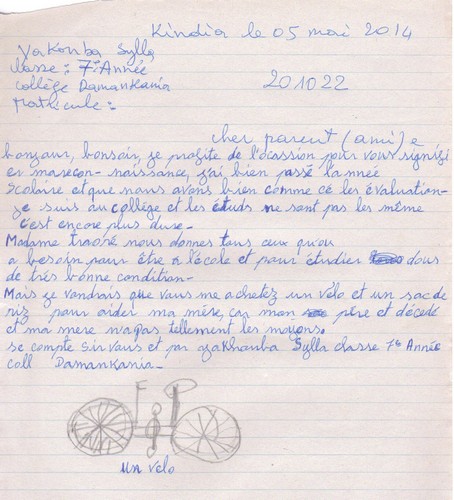 Kindia le 05 mai 2014
yakonba Sylla
classe : 7e Année
collège Damankania
matricule : 201022
cher parent (ami) e
bonjour, bonsoir, je profite de l'ocassion pour vous signifi
er mareçon-naissance, j'ai bien passé l'anneé
Scolaire et que nous avons bien comme cé les évaluation-
je suis au collège et les étuds ne sont pas les même
c'est encore plus duse-
Madame traoré nous donnes tous ceux qu'ou
a besoin pour être à l'école et pour étudier dous
de très bonne condition-
Mais je voudrais que vous me achetez un vélo et un sac de
riz pour aider ma mère, car mon père et décedé
et ma mère n'a pas tellement les moyens.
se compte sir vous et par yakhanba Sylla classe 7e Année
coll Damankania-
un vélo